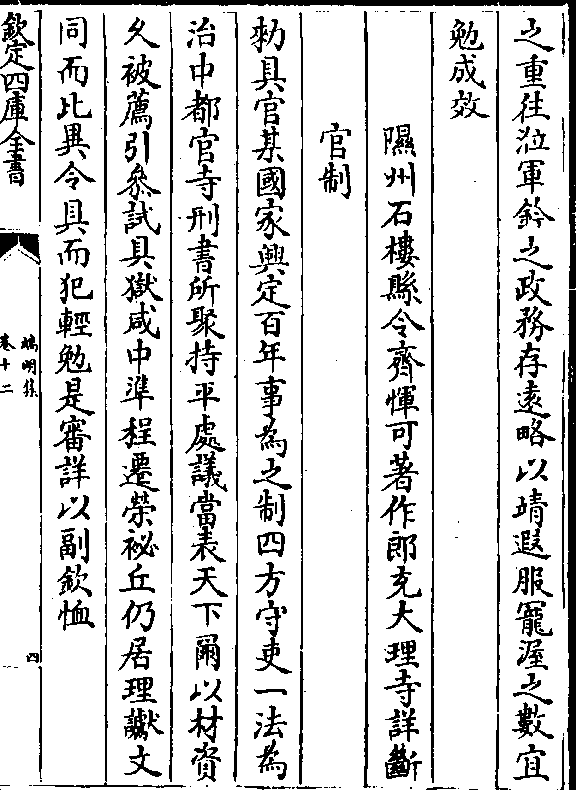 之重往涖軍鈐之政務存遠略以靖遐服寵渥之數宜
勉成效
隰州石樓縣令齊惲可著作郎充大理寺詳斷
官制
勑具官某國家興定百年事為之制四方守吏一法為
治中都官寺刑書所聚持平處議當表天下爾以材資
久被薦引叅試具獄咸中準程遷榮祕丘仍居理讞文
同而比異令具而犯輕勉是審詳以副欽恤
欽定四庫全書
端明集
卷十二
四